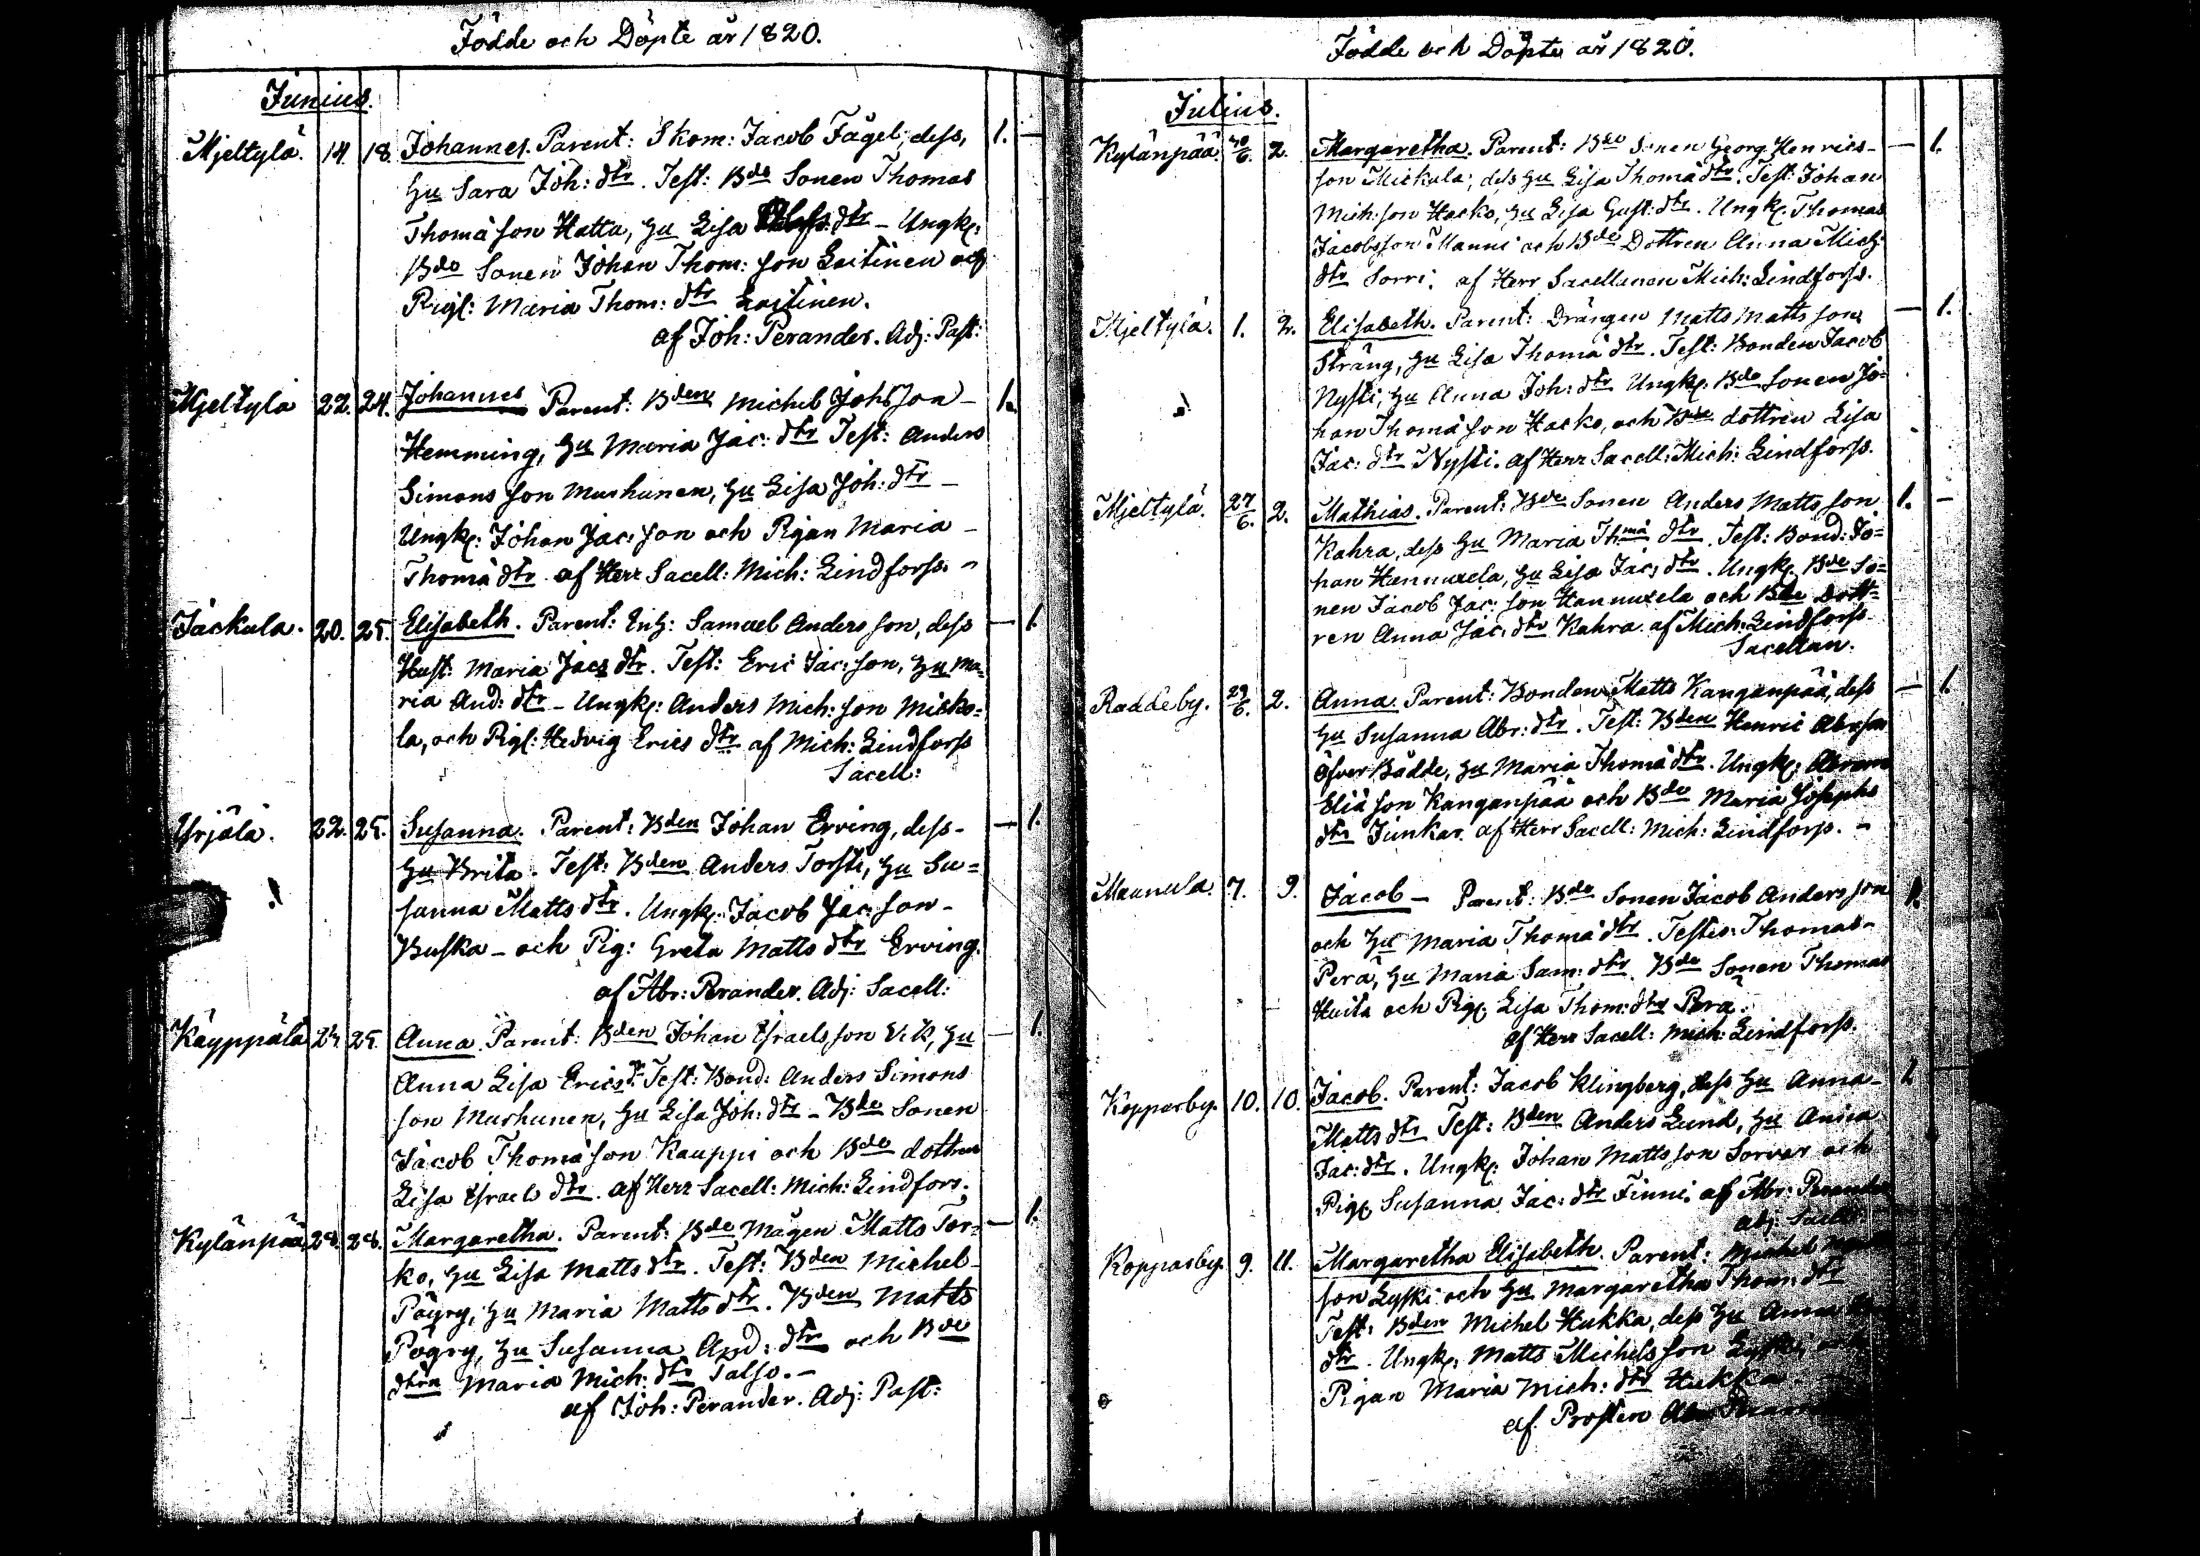 Födde och Döpte år 1820.
Junius.
Mjeltylä. 14. 18. Johannes. Parent: Skom: Jacob Fågel, dess, 1. —
Hu Sara Joh: dtr. Test: Bde Sonen Thomas
Thomä son Hatta, Hu Lisa dtr — Ungk:
Bde Sonen Johan Thom: son Laitinen och
Pigl: Maria Thom: dtr Laitinen.
af Joh: Perander. Adj: Past:
Mjeltylä 22. 24. Johannes Parent: Bden Michel Johsson — 1.
Hemming, Hu Maria Jac: dtr Test: Anders
Simons son Murhunen, Hu Lisa Joh: dtr —
Ungk: Johan Jac: son och Pigan Maria —
Thomä dtr af Herr Sacell: Mich: Lindforss. —
Jackula. 20. 25. Elisabeth. Parent: Enh: Samuel Anders son, dess — 1
Hust: Maria Jacs dtr. Test: Eric Jac: son, Hu Ma=
ria And: dtr — Ungk: Anders Mich: son Micko=
la, och Pigl: Hedvig Erics dtr af Mich: Lindforss
Sacell:
Urjäla. 22. 25. Susanna. Parent: Bden Johan Erving, dess — — 1.
Hu Brita. Test: Bden Anders Torsti, Hu Su=
sanna Matts dtr. Ungk: Jacob Jac: son —
Buska — och Pig: Greta Matts dtr Erving.
af Abr: Perander. Adj: Sacell:
Käyppälä 24 25. Anna. Parent: Bden Johan Israels son Vik, Hu — 1.
Anna Lisa Erics dr Test: Bond: Anders Simons
son Murhunen, Hu Lisa Joh: dtr — Bde Sonen
Jacob Thomä son Kauppi och Bde dottren
Lisa Israels dtr. af Herr Sacell: Mich: Lindfors.
Kylänpää 28. 28. Margaretha. Parent: Bde Mågen Matts Tor= — 1.
ko, Hu Lisa Matts dtr. Test: Bden Michel
Pöyry, Hu Maria Matts dtr. Bden Matts
Pöyry, Hu Susanna And: dtr och Bde
dtrn Maria Mich: dtr Talso. —
af Joh: Perander. Adj: Past:
Födde och Döpte år 1820.
Julius.
Kylänpää 30/6. 2. Margaretha. Parent: Bde Sonen Georg Henrics — — 1.
son Mickula, dess Hu Lisa Thomä dtr. Test: Johan
Mich: son Hacko, Hu Lisa Gust: dtr. Ungk: Thomas
Jacobsson Manni och Bde Dottren Anna Mich:
dtr Sorri. af Herr Sacellanen Mich: Lindforss.
Mjeltylä. 1. 2. Elisabeth. Parent: Drängen Matts Matts son — 1.
Sträng, Hu Lisa Thomä dtr. Test: Bonden Jacob
Nysti, Hu Anna Joh: dtr Ungk: Bde Sonen Jo=
han Thomä son Hacko, och Bde dottren Lisa
Jac: dtr Nysti. af Herr Sacell: Mich: Lindforss.
Mjeltylä. 27/6. 2. Mathias. Parent: Bde Sonen Anders Matts son 1. —
Kahra, dess Hu Maria Thomä dtr. Test: Bond: Jo=
han Hannuxela, Hu Lisa Jac: dtr. Ungk. Bde So=
nen Jacob Jac: son Hannuxela och Bde Dott=
ren Anna Jac: dtr Kahra af Mich: Lindforss
Sacellan.
Raddeby. 29/6. 2. Anna. Parent: Bonden Matts Kanganpää, dess — 1.
Hu Susanna Abr: dtr. Test: Bden Henric Abr: son
Öfver Rädde, Hu Maria Thomä dtr. Ungk: Abram
Eliä son Kanganpää och Bde Maria Josephs
dtr Junkar. af Herr Sacell: Mich: Lindforss. —
Mannula. 7. 9. Jacob — Parent: Bde Sonen Jacob Anders son 1.
och Hu Maria Thomä dtr. Testes: Thomas —
Perä, Hu Maria Sam: dtr. Bde Sonen Thomas
Huita och Pigl Lisa Thom: dtr Perä.
af Herr Sacell: Mich: Lindforss.
Kopparby. 10. 10. Jacob. Parent: Jacob Klingberg, dess Hu Anna — 1
Matts dtr Test: Bden Anders Lund, Hu Anna
Jac: dtr. Ungk: Johan Matts son Sorvar och
Pigl Susanna Jac: dtr Finni. af Abr: Perander
adj: Sacell:
Kopparby 9. 11. Margaretha Elisabeth. Parent: Michel
son Lyski och Hu Margaretha Thom: dtr
Test: Bden Michel Hukka, dess Hu Anna
dtr. Ungk: Matts Michels son och
Pigan Maria Mich: dtr Hukka
af Prosten